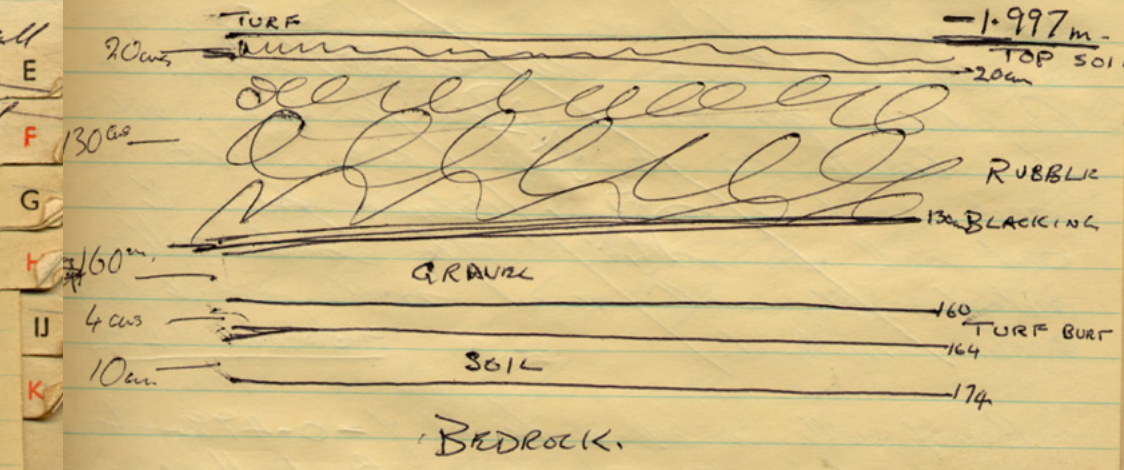 all
E
F
G
H
IJ
K
TURF
-1.997m.
20cms
TOP SOI
20cm
130cms
RUBBLE
130cm BLACKING
160cm.
GRAVEL
160
4 cms
TURF BURT
164
SOIL
10cm
174
BEDROCK.